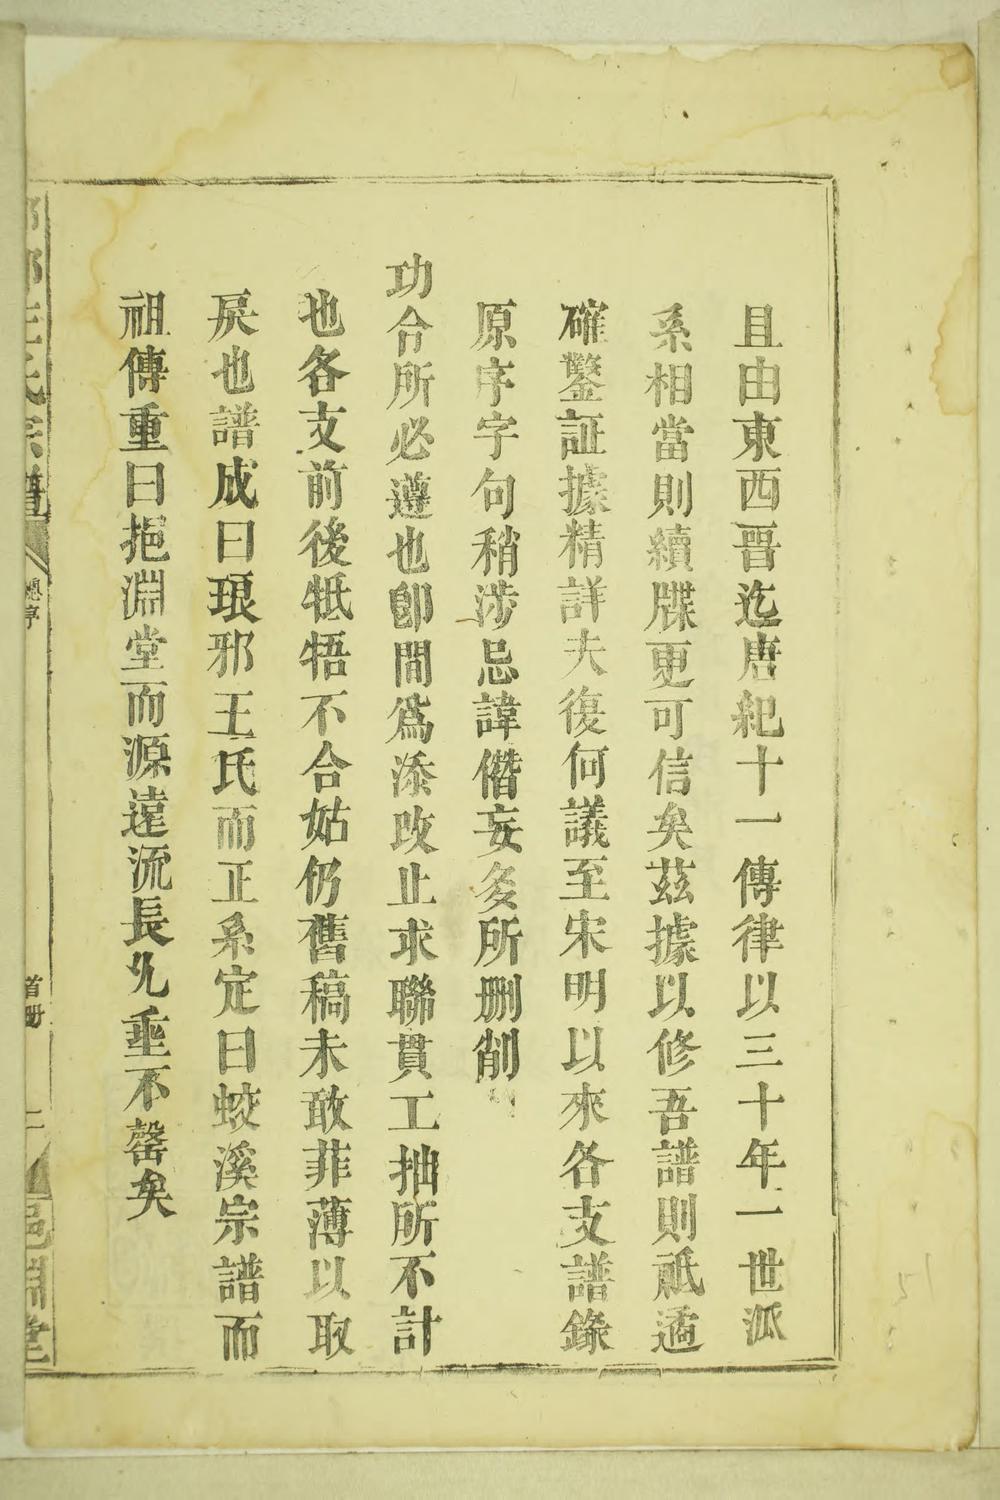 且由東西晉迄唐紀十一傳律以三十年一世派
系相當則續牒更可信矣茲據以修吾譜則祇遹
確鑿証據精詳夫復何議至宋明以來各支譜錄
原序字句稍涉忌諱僭妄多所删削
功令所必遵也卽間爲添改止求聯貫工拙所不計
也各支前後牴牾不合姑仍舊稿未敢菲薄以取
戾也譜成曰琅邪王氏而正系定曰蛟溪宗譜而
祖傳重曰挹淵堂而源遠流長久垂不罄矣
王氏宗譜
總序
首册
二
挹淵堂